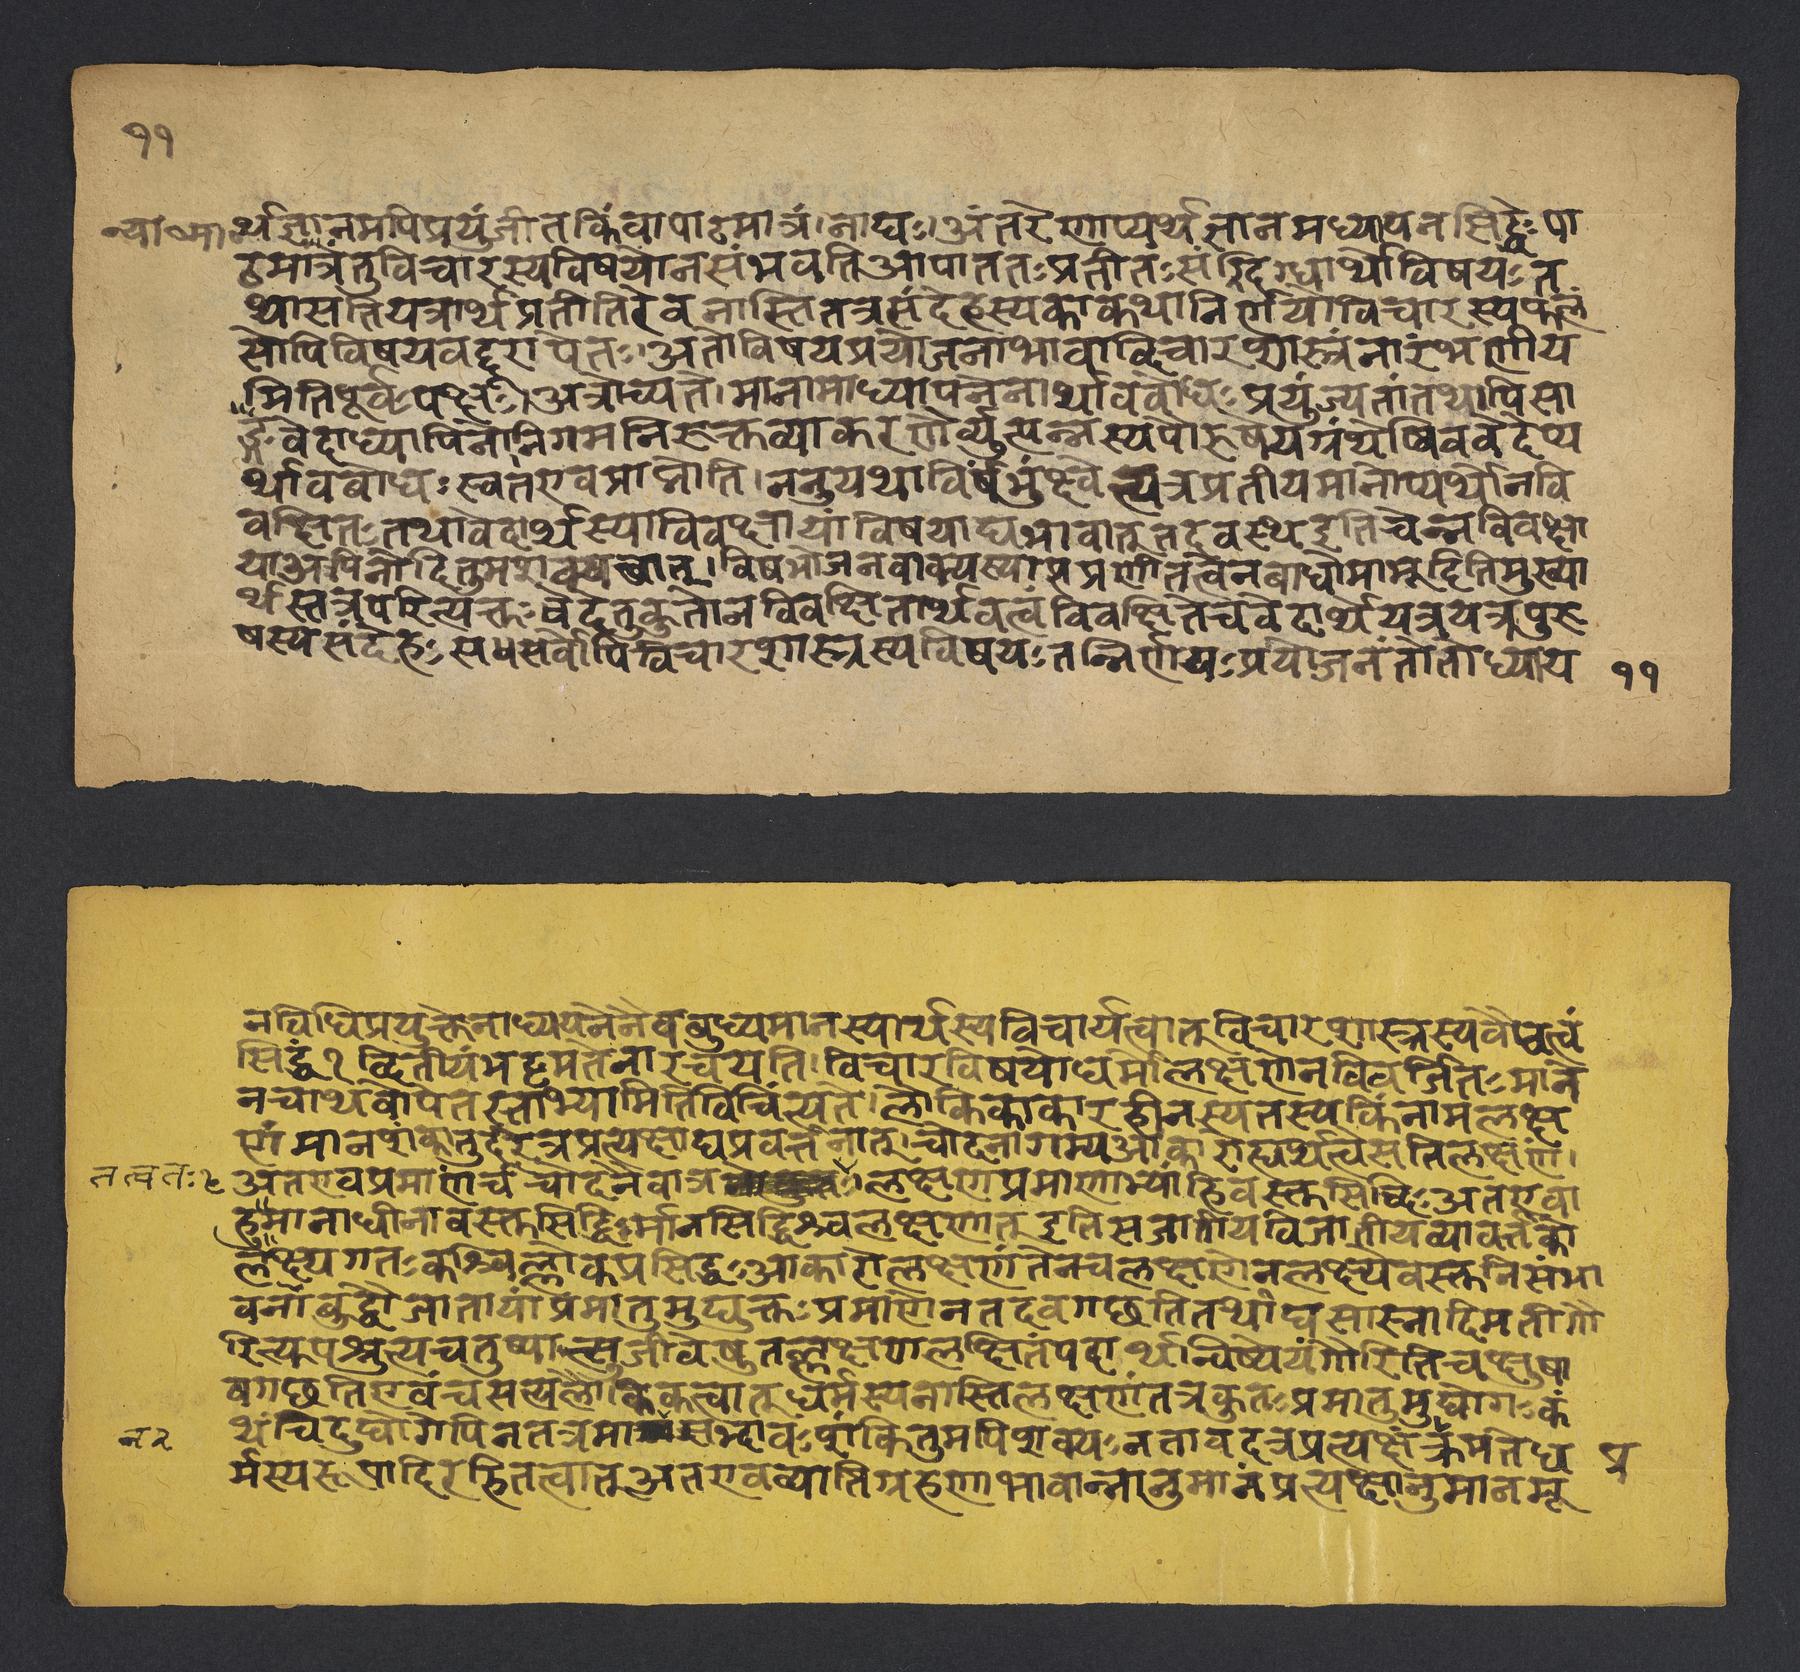 ११
न्या॰मा॰ र्थज्ञानमपिप्रयुंजीतकिंवापाठमात्रं।नाद्यः।अंतरेणाप्यर्थज्ञानमध्यापनसिद्धेः पा
ठमात्रंतुविचारस्यविषयोनसंभवतिआपाततःप्रतीतःसंदिग्धोर्थोविषयःत
थासतियत्रार्थप्रतीतिरेवनास्तितत्रसंदेहस्यकाकथानिर्णयोविचारस्यफलं
सोपिविषयवद्दूरापेतः।अतोविषयप्रयोजनाभावाद्विचारशास्त्रंनारंभणीय
मितिपूर्वःपक्षः।अत्रोच्यते।मानामाध्यापनेनार्थावबोधःप्रयुज्यतांतथापिसा
ङ्गवेदाध्यायिनोनिगमनिरुक्तव्याकरणैर्व्युत्पन्नस्यपौरुषेयग्रंथेष्विववेदेप्य
र्थावबोधःस्वतएवप्राप्नोति।ननुयथाविषंभुंक्ष्वेत्यत्रप्रतीयमानोप्यर्थोनवि
वक्षितःतथावेदार्थस्याविवक्षायांविषयाद्यभावात्तुतदवस्थइतिचेन्नविवक्षा
याअपिनोदितुमशक्यत्वात्।विषभोजनवाक्यस्याप्तप्रणीतत्वेनबाधोमाभूदितिमुख्या
र्थस्तत्रपरित्यक्तःवेदेतुकुतोनविवक्षितार्थवत्वंविवक्षितेचवेदार्थेयत्रयत्रपुरु
षस्यसंदेहःसधसर्वोपिविचारशास्त्रस्यविषयःतन्निर्णयःप्रयोजनंतोतोध्याय ११
नविधिप्रयुक्तेनाध्ययनेनैवबुध्यमानस्यार्थस्यविचार्यत्वात्विचारशास्त्रस्यवैधत्वं
सिद्धं१द्वितीयंभट्टमतेनारचयति।विचारविषयोधर्मोलक्षणेनविवर्जितःमाने
नचाथवोपेतस्ताभ्यामितिविचिंत्यते।लौकिकाकारहीनस्यतस्यकिंनामलक्ष
णंमानशंकातुदूरेत्रप्रत्यक्षाद्यप्रवर्त्तनात्।चोदनागम्यआकारोह्यर्थत्वेसतिलक्षणं।
तत्वतः२ अतएवप्रमाणंचचोदनैवात्र।लक्षणप्रमाणाभ्यांहिवस्तुसिद्धिःअतएवा
हुःमानाधीनावस्तुसिद्धिर्मानसिद्धिश्चलक्षणात्इतिसजातीयविजातीयव्यावर्तको
लक्ष्यगतःकश्चिल्लोकप्रसिद्धःआकारोलक्षणंतेनचलक्षणेनलक्ष्येवस्तुनिसंभा
वनाबुद्धौजातायांप्रमातुमुद्युक्तःप्रमाणेनतदवगछतितथांघसास्नादिमतीगौ
रित्युपश्रुत्यचतुष्पात्सुजीवेषुतल्लक्षणलक्षितंपदार्थमन्विष्येयंगौरितिचक्षुषा
वगछतिएवंचसत्यलौकिकत्वात्धर्मस्यनास्तिलक्षणंतत्रकुतःप्रमातुमुद्योगःकं
न२ थंचिदुद्योगेपिनतत्रमानसद्भावःशंकितुमपिशक्यःनतावदत्रप्रत्यक्षंक्रमतेध प्र
र्मस्यरूपादिरहितत्वात्अतएवव्याप्तिग्रहणाभावान्नानुमानंप्रत्यक्षानुमानमू